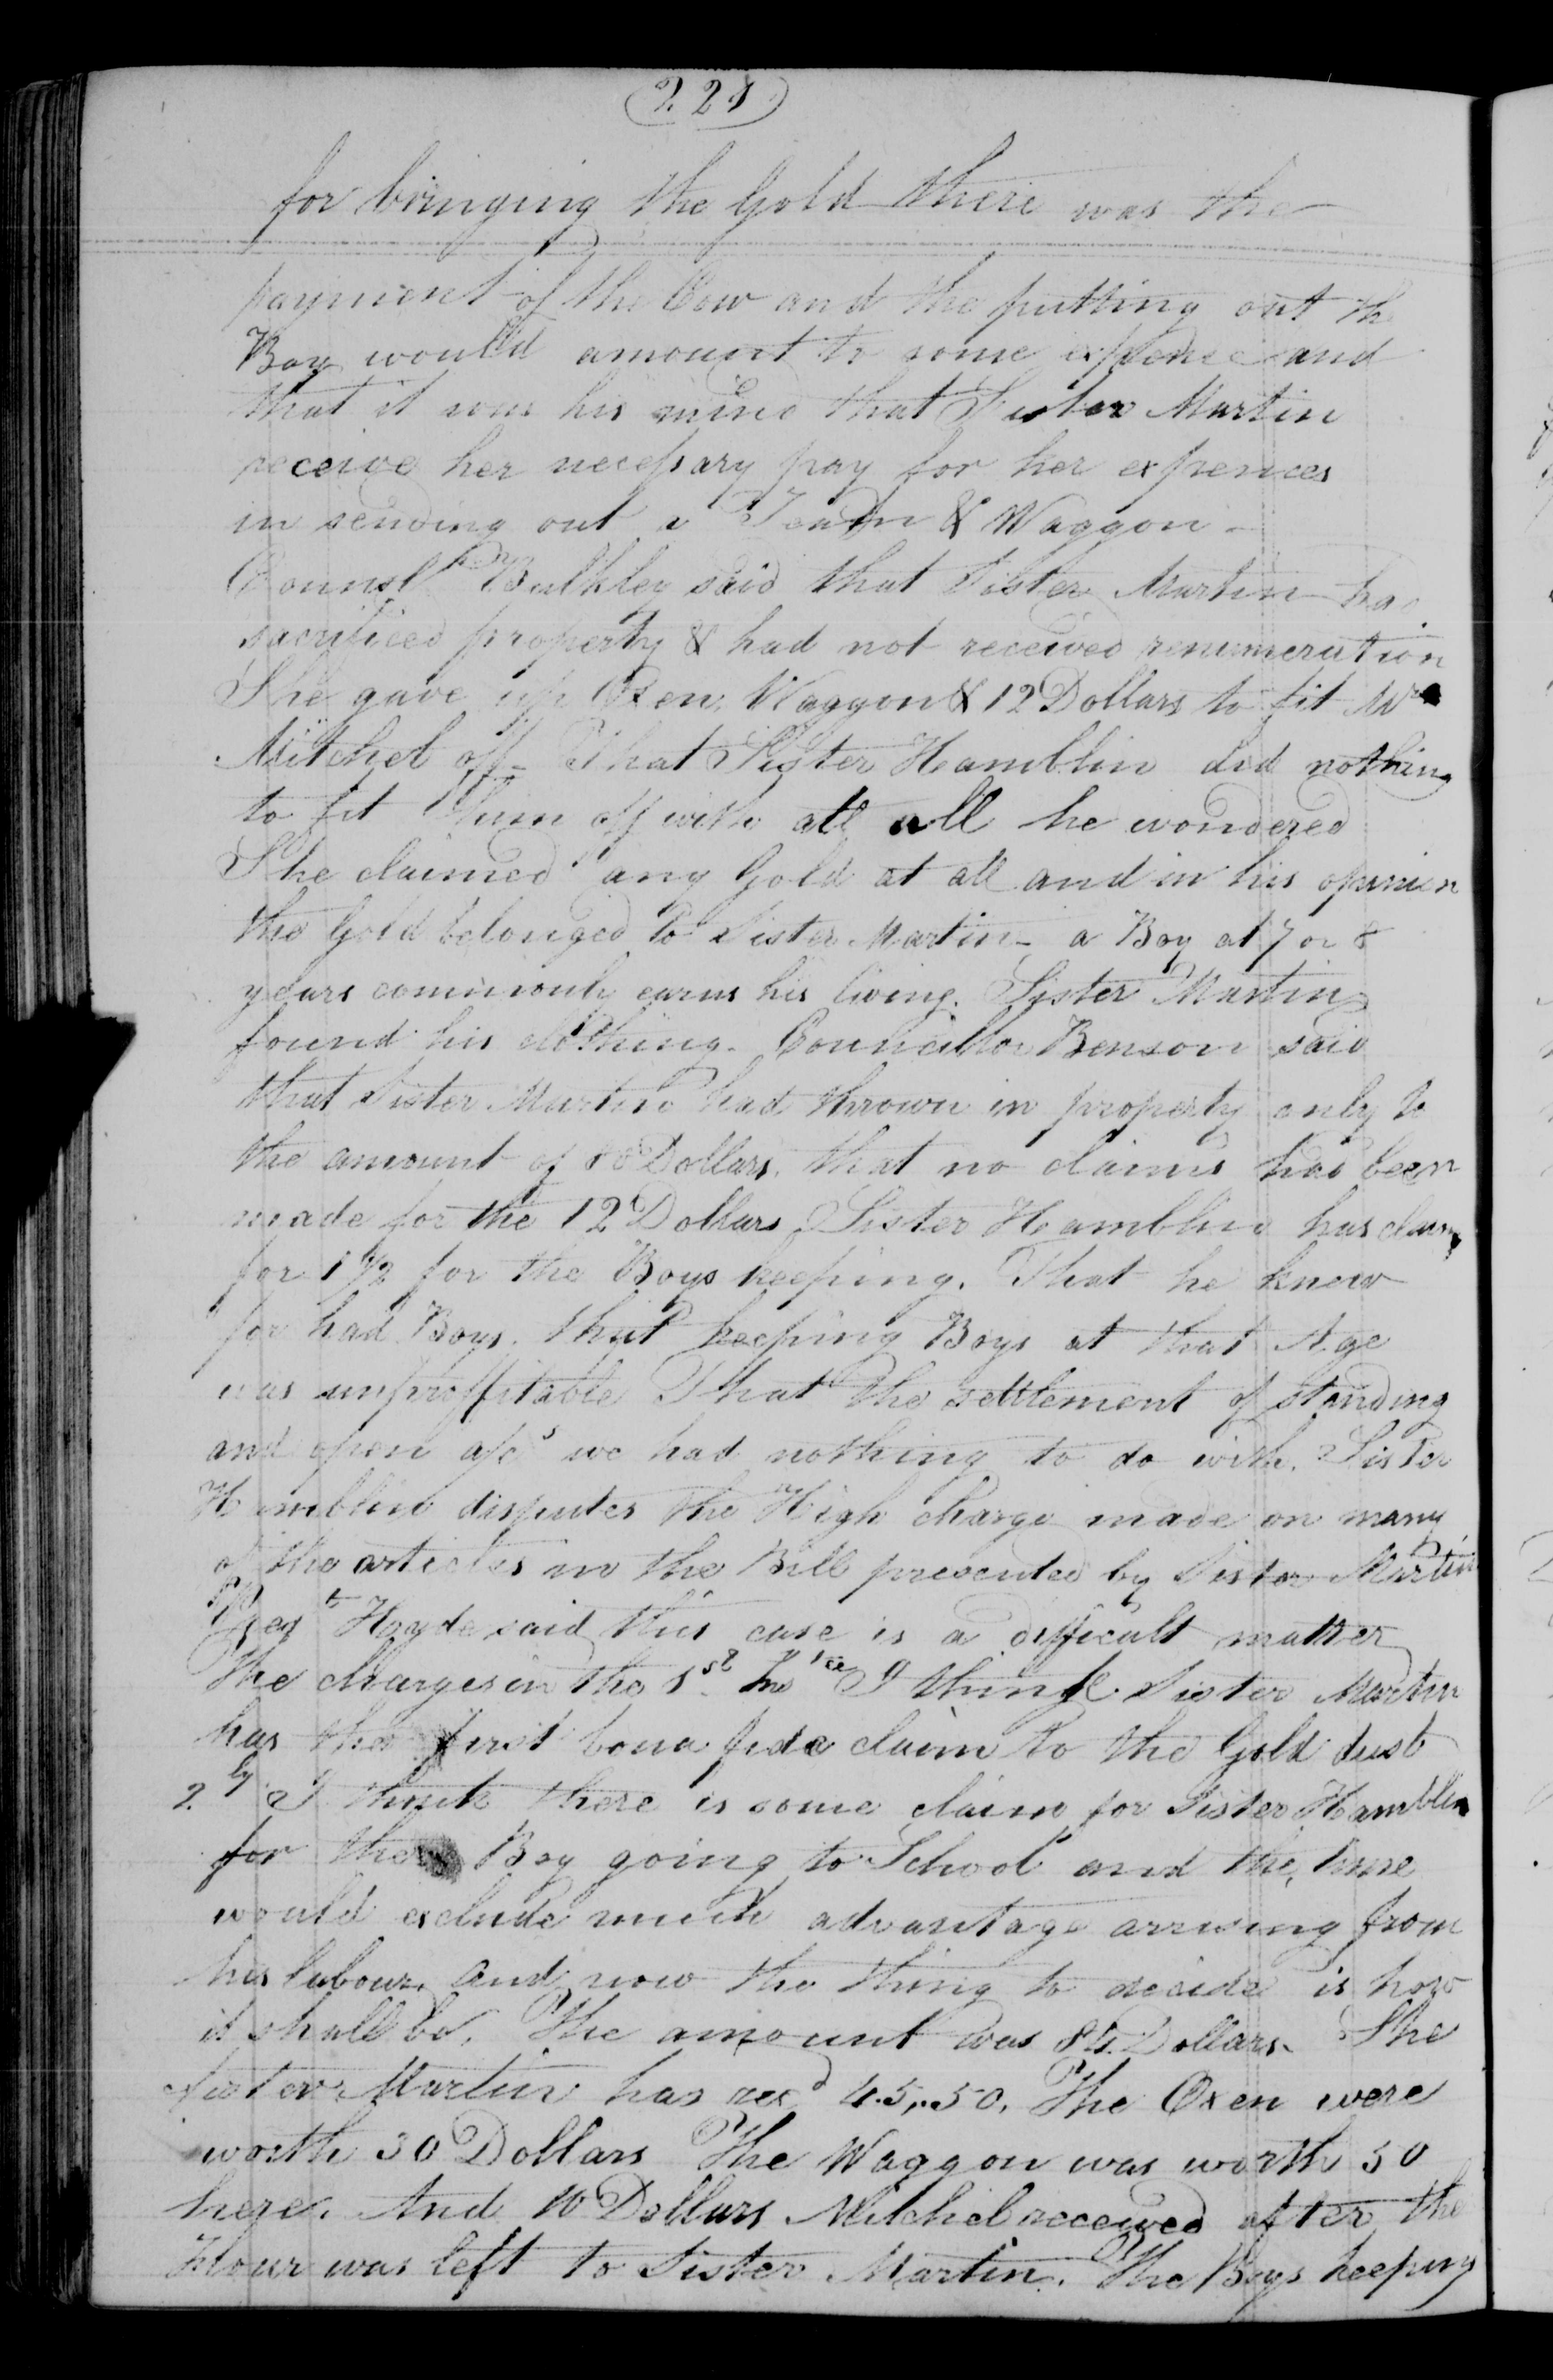 228
for bringing the Gold there was the
payment of the Cow and the putting out the
Boy would amount to some expense and
that it was his mind that Sister Martin
receive her necessary pay for her expences
in sending out a Team & Waggon -
Counsl Bulkley said that Sister Martin had
sacrificed property & had not received renumeration
She gave up Oxen, Waggon & 12 Dollars to fit Mr
Mitchel off - That Sister Hamblin did nothing
to fit them off with at all he wondered
She claimed any Gold at all and in his opinion
the Gold belonged to Sister Martin - a Boy at 7 or 8
years commonly earns his living. Sister Martin
found his clothing. Councillor Benson said
that Sister Martin had thrown in property only to
the amount of 80 Dollars, that no claims had been
made for the 12 Dollars Sister Hamblin has claim
for 1 1/2 for the Boys keeping. That he knew
for had Boys. that keeping Boys at that Age
was unproffitable That the settlement of standing
and open a/cs we had nothing to do with. Sister
Hamblin disputes the High charge made on many
of the articles in the Bill presented by Sister Martin
Prest Hyde said this case is a difficult matter
The Charges in the 1st Insce I think Sister Martin
has the first bona fide claim to the Gold dust
2ly I think there is some claim for Sister Hamblin
for the Boy going to School and the time
would exclude much advantage arrising from
his labour, and now the thing to decide is how
it shall be. The amount was 84 Dollars. The
Sister Martin has recd 45,,50, The Oxen were
worth 30 Dollars The Waggon was worth 50
here. And 10 Dollars Mitchel received after the
Flour was left to Sister Martin. The Boys keeping